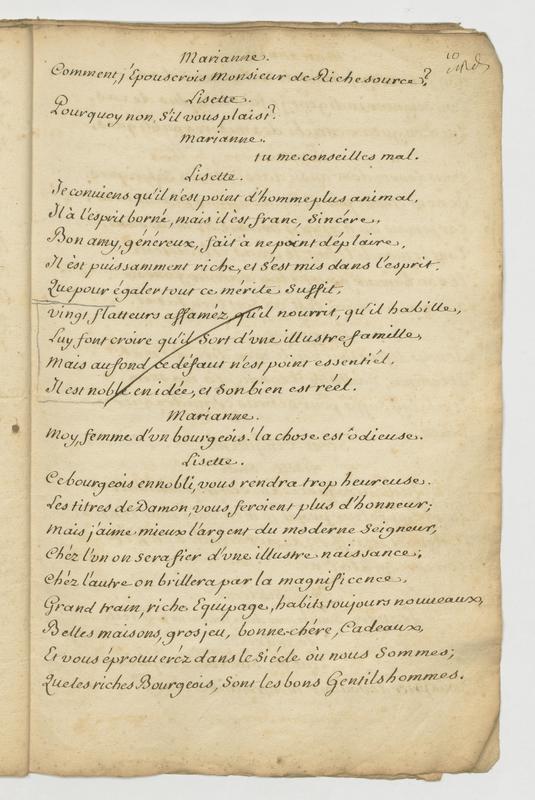 10
Marianne.
Comment, j'Epouserois Monsieur de Richesource?
Lisette.
Pourquoy non, S'il vous plaist?
Marianne.
tu me conseilles mal.
Lisette.
Je conviens qu'il n'est point d'homme plus animal,
Il à l'esprit borné, mais il est franc, Sincére,
Bon amy, généreux, fait à ne point déplaire,
Il ést puissamment riche, et s'est mis dans l'esprit,
Que pour égaler tout ce mérite Suffit,
vingt flatteurs affaméz qu'il nourrit, qu'il habille,
Luy font croire qu'il Sort d'vne illustre famille,
Mais au fond ce défaut n'est point essentiél,
Il est noble en idée, et Son bien est réel.
Marianne.
Moy, femme d'vn bourgeois! la chose est odieuse.
Lisette.
Ce bourgeois ennobli, vous rendra trop heureuse.
Les titres de Damon, vous feroient plus d'honneur;
Mais j'aime mieux l'argent du moderne Seigneur,
Chéz l'vn on Sera fier d'vne illustre naissance;
Chéz l'autre on brillera par la magnificence,
Grand train, riche Equipage, habits toujours nouueaux,
Belles maisons, gros jeu, bonne-chére, Cadeaux,
Et vous éprouueréz dans le Siécle où nous Sommes;
Que les riches Bourgeois, Sont les bons Gentilshommes.